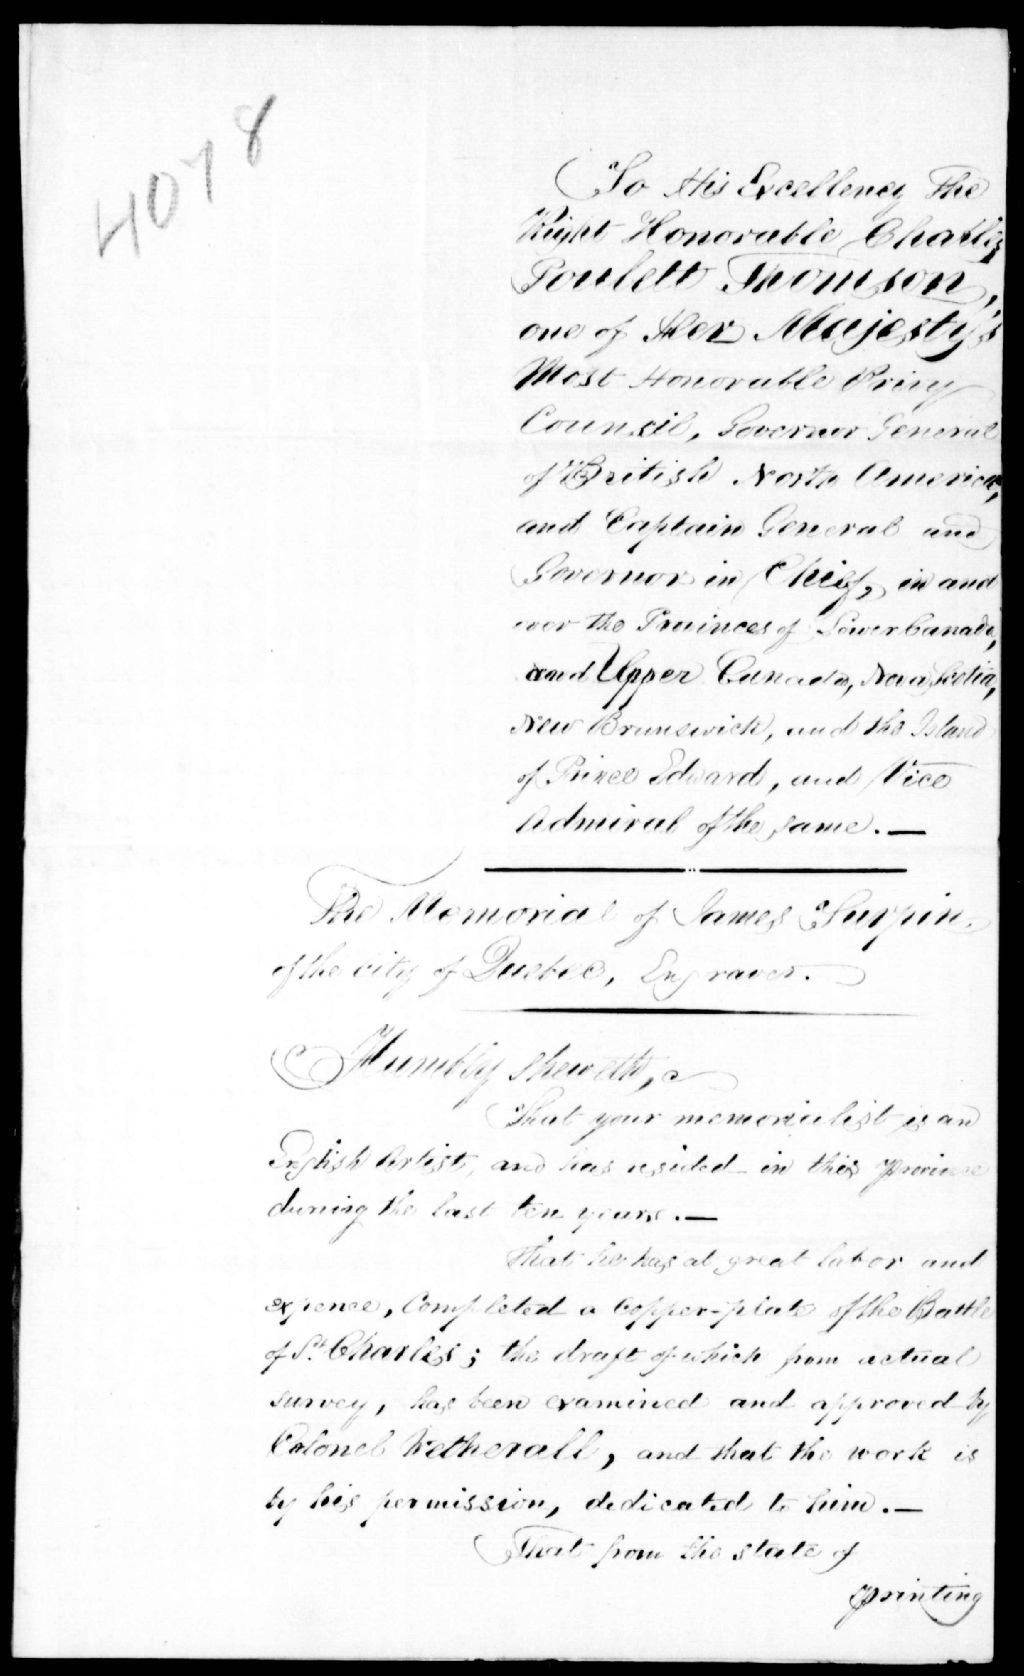 4078
To His Excellency The
Right Honorable Charles
Poulett Thomson,
one of Her Majesty's
Most Honorable Privy
Council, Governor General
of British North America,
and Captain General and
Governor in Chief, in and
over the Provinces of Lower Canada,
and Upper Canada, Nova Scotia,
New Brunswick, and the Island
of Prince Edward, and Vice
Admiral of the same. —
The Memorial of James Turpin.
of the city of Quebec, Engraver.
Humbly sheweth,
That your memorialist is an
English Artist, and has resided in this province
during the last ten years. —
That he has at great labor and
expence, Completed a Copper-plate of the Battle
of St. Charles; the draft of which from actual
survey, has been examined and approved by
Colonel Wetherall, and that the work is
by his permission, dedicated to him. —
That from the state of
printing